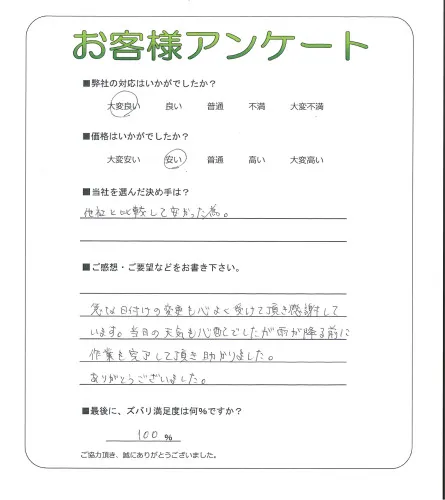 お客様アンケート
■弊社の対応はいかがでしたか？
大変良い 良い 普通 不満 大変不満
■価格はいかがでしたか？
大変安い 安い 普通 高い 大変高い
■当社を選んだ決め手は？
他社と比較して安かった為。
■ご感想・ご要望などをお書き下さい。
急な日付けの変更も心よく受けて頂き感謝して
います。当日の天気も心配でしたが雨が降る前に
作業も完了して頂き助かりました。
ありがとうございました。
■最後に、ズバリ満足度は何%ですか？
100 %
ご協力頂き、誠にありがとうございました。